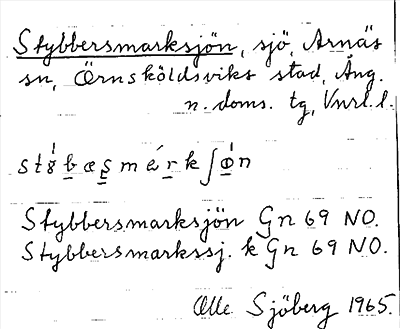 Stybbersmarksjön, sjö, Arnäs
sn, Örnsköldsviks stad, Ång.
n. doms. tg, Vnrl. l.
Stybbersmarksjön Gn 69 NO.
Stybbersmarkssj. k Gn 69 NO.
Olle Sjöberg 1965.